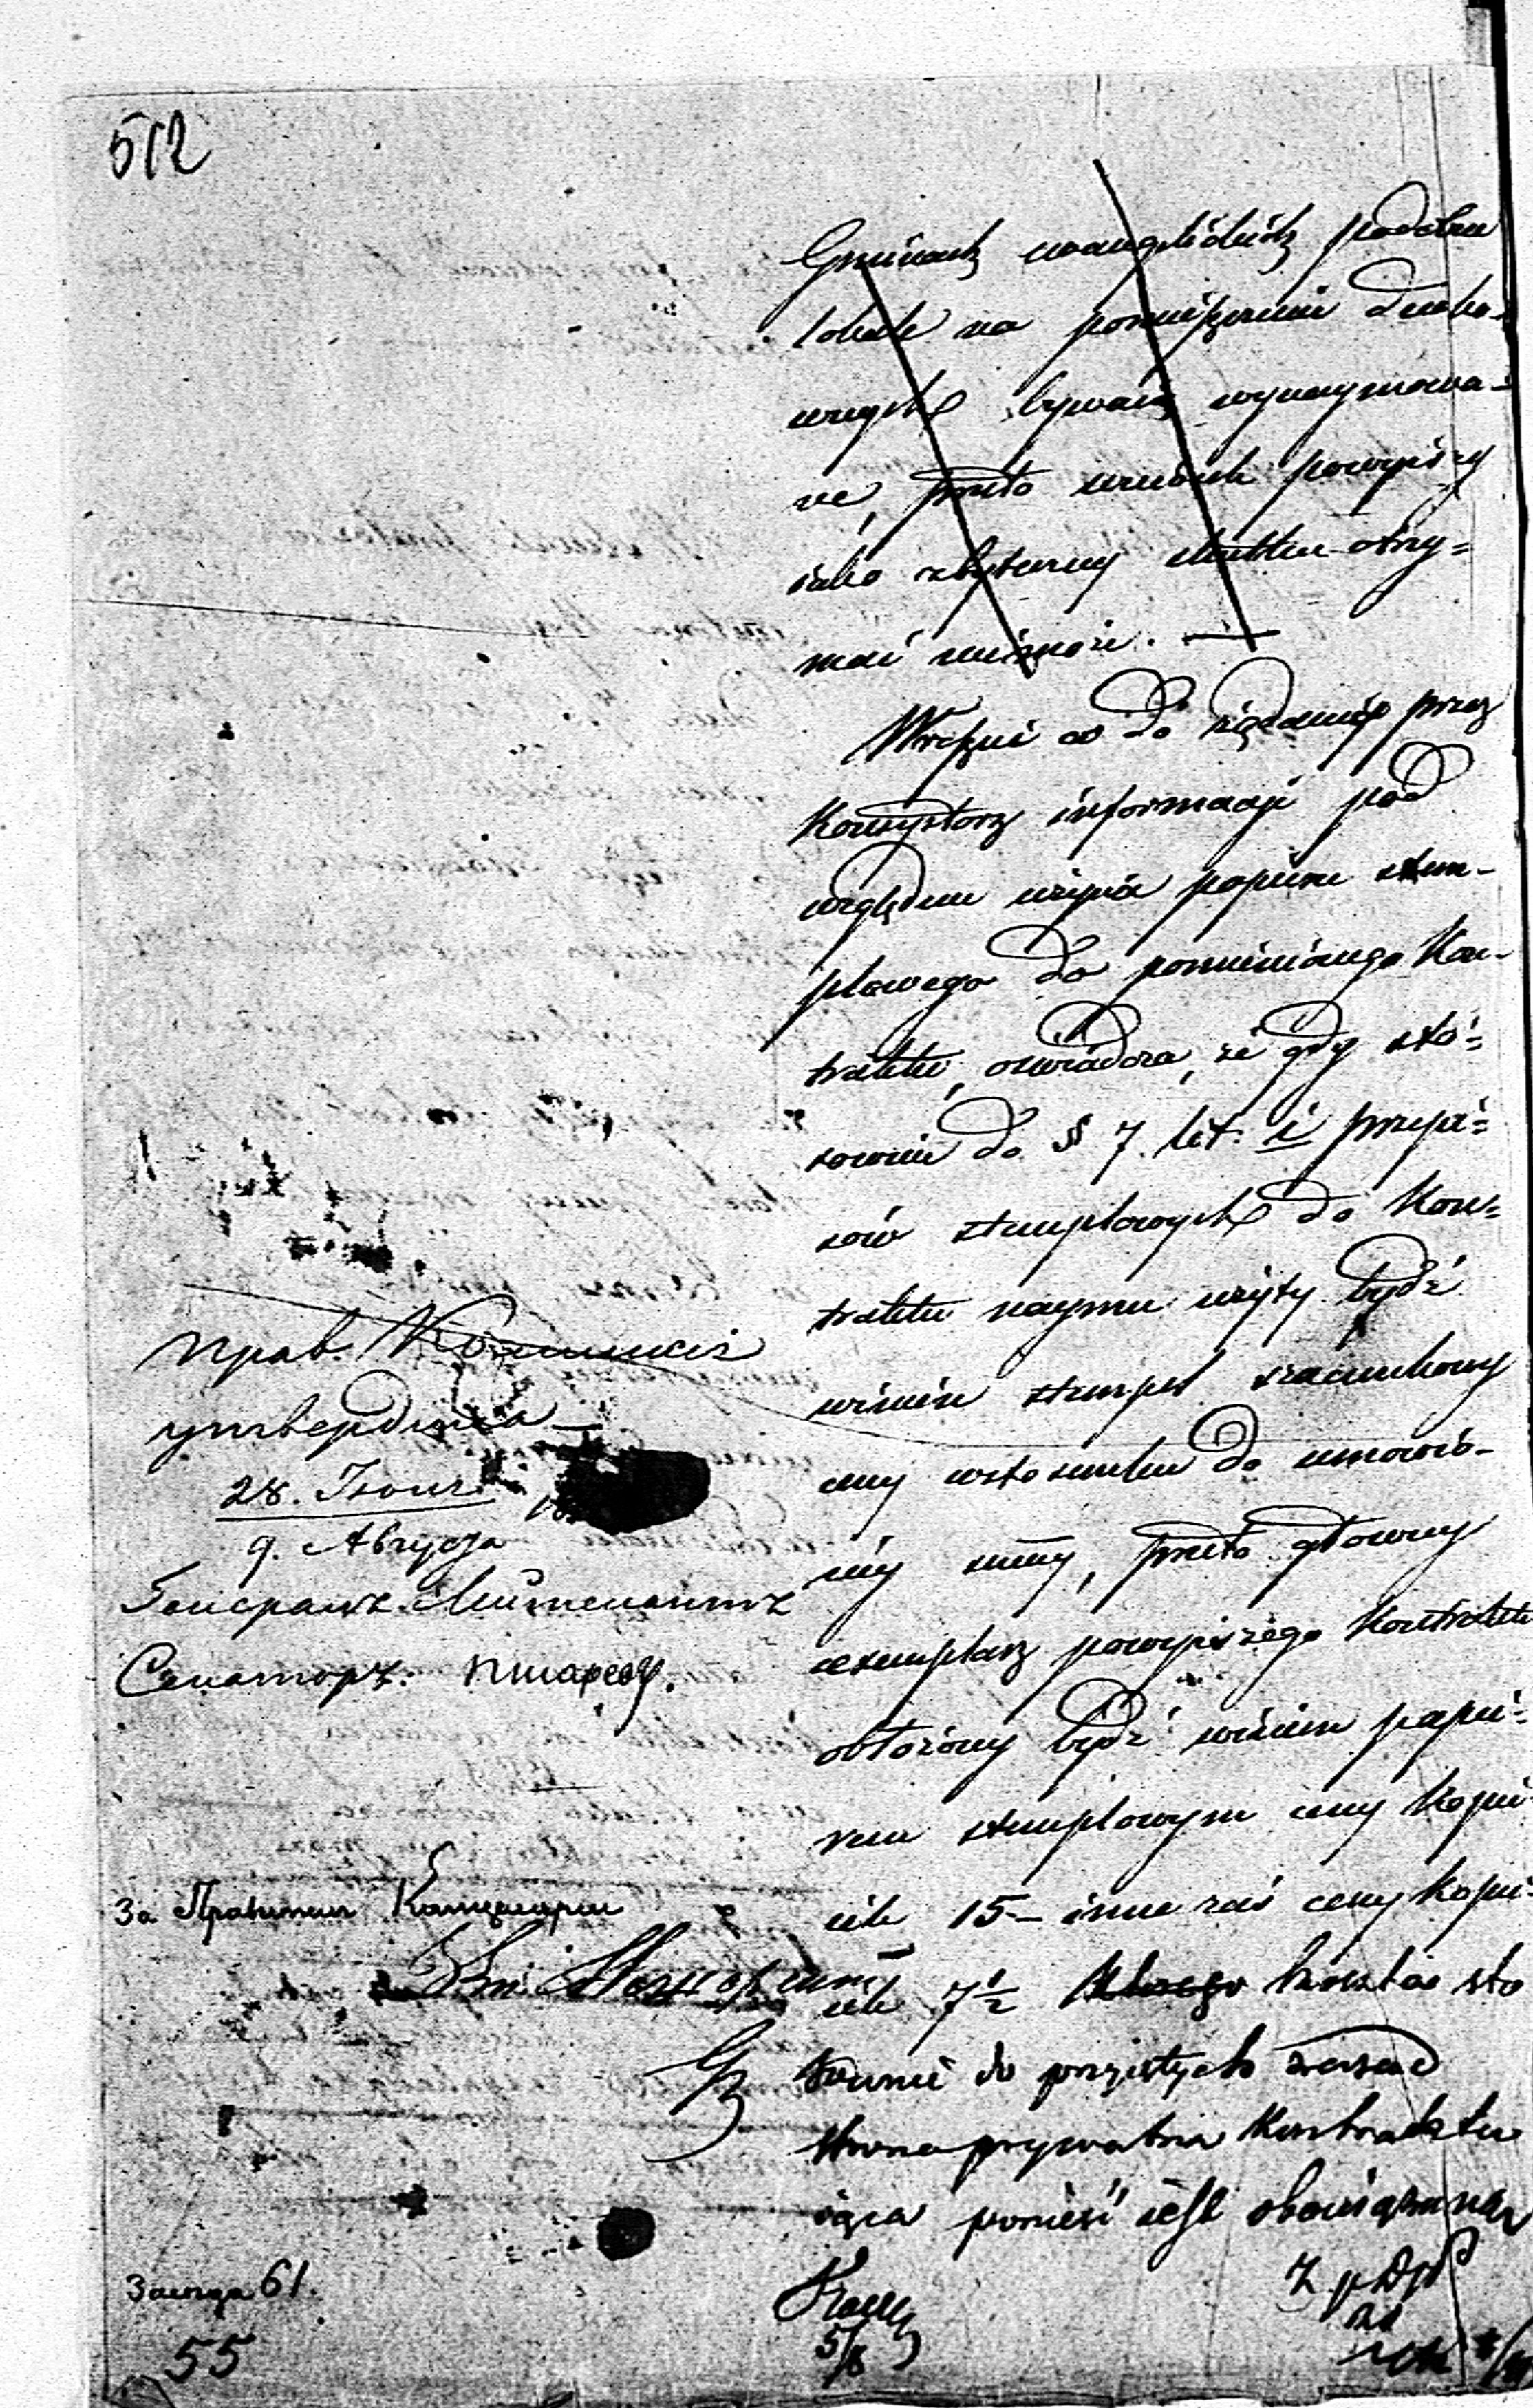 512
Gminach ewangelickich podobne
lokale na pomieszczenie ducho-
wnych bywaią wynaymowa-
ne, przeto wniosek powyższy
iako zbyteczny skutku otrzy=
mać niemoże. —
Wreszcie co do żądaney przez
Konsystorz informacyi pod
względem użycia papieru stem-
plowego do pomienionego Kon-
traktu, oświadcza, że gdy sto=
sownie do § 7 lit: i przepi=
sów stemplowych do Kon=
traktu naymu użyty bydź
winien stempel szacunkowy
ceny wstosunku do umówio-
néy summy, przeto główny
exemplarz powyższego Kontraktu
obłożony bydź winien papie=
rem stemplowym ceny Kopie-
iek 15 – inne zaś ceny Kopie-
iek 7½ koszta sto
sownie do przyjętych zasad
strona prywatna Kontraktu
iąca ponieść iest obowiązana
Прав. Коммисія
утвердила
28. Іюля
9. Августа
Генералъ Лейтенантъ
Сенаторъ:
За Правителя Канцеляріи
61.
55
5/8